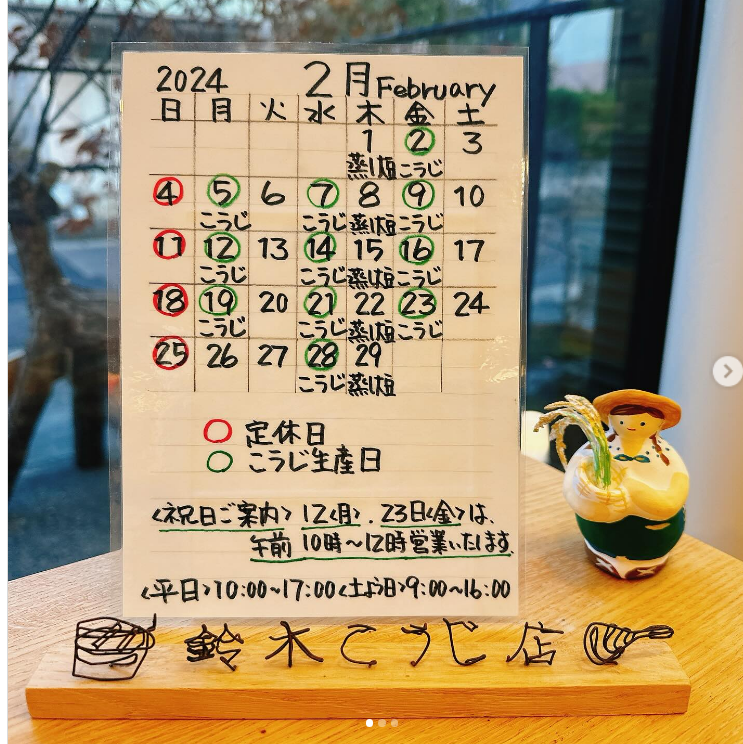 2024 2月 February
日 月 火 水 木 金 土
1 2 3
蒸し短 こうじ
4 5 6 7 8 9 10
こうじ こうじ 蒸し短 こうじ
11 12 13 14 15 16 17
こうじ こうじ 蒸し短 こうじ
18 19 20 21 22 23 24
こうじ こうじ 蒸し短 こうじ
25 26 27 28 29
こうじ 蒸し短
定休日
こうじ生産日
<祝日ご案内> 12<月>. 23日<金>は、
午前 10時〜12時営業いたします.
<平日>10:00~17:00<土よう日>9:00~16:00
鈴木こうじ店